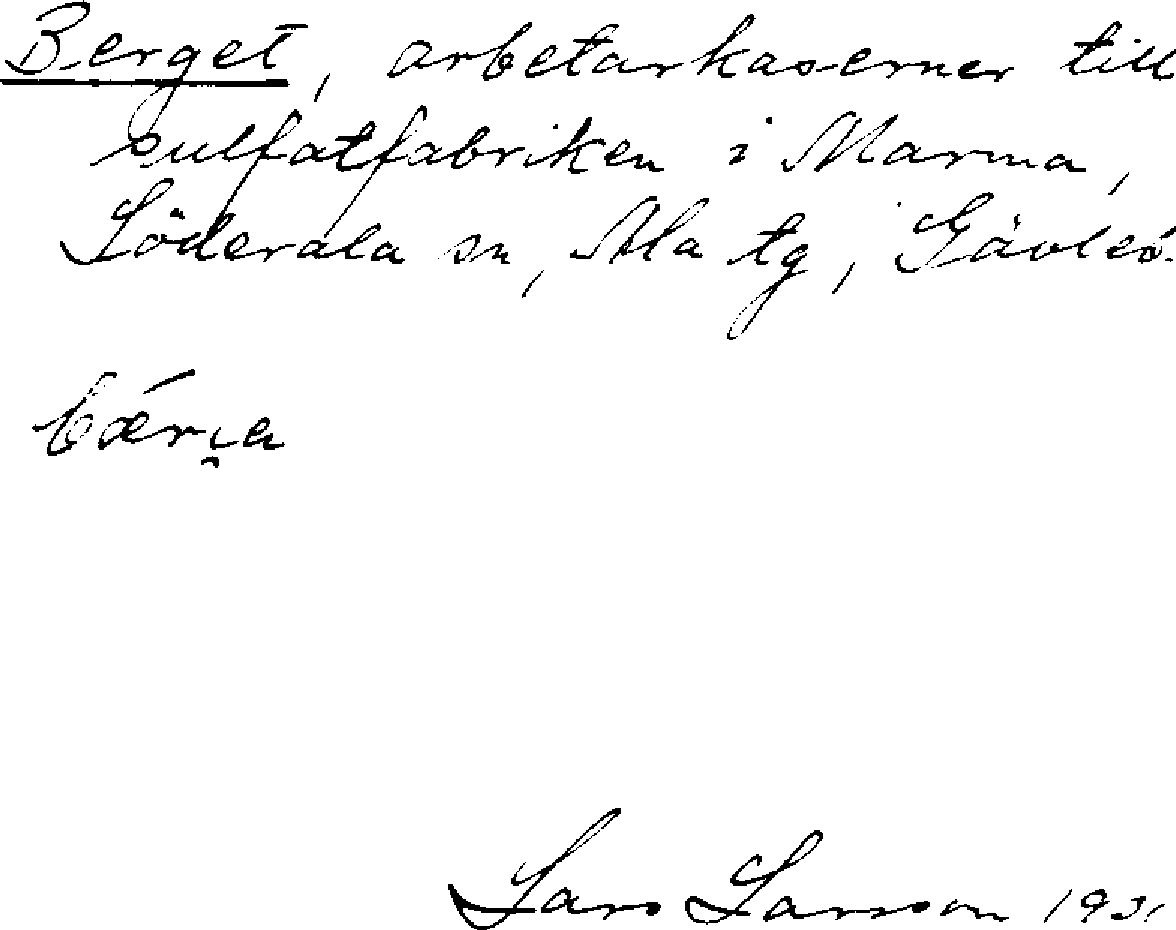 Berget, arbetarkaserner till
sulfatfabriken i Marma,
Söderala sn, Ala tg, Gävleb.
Lars Larsson 1931